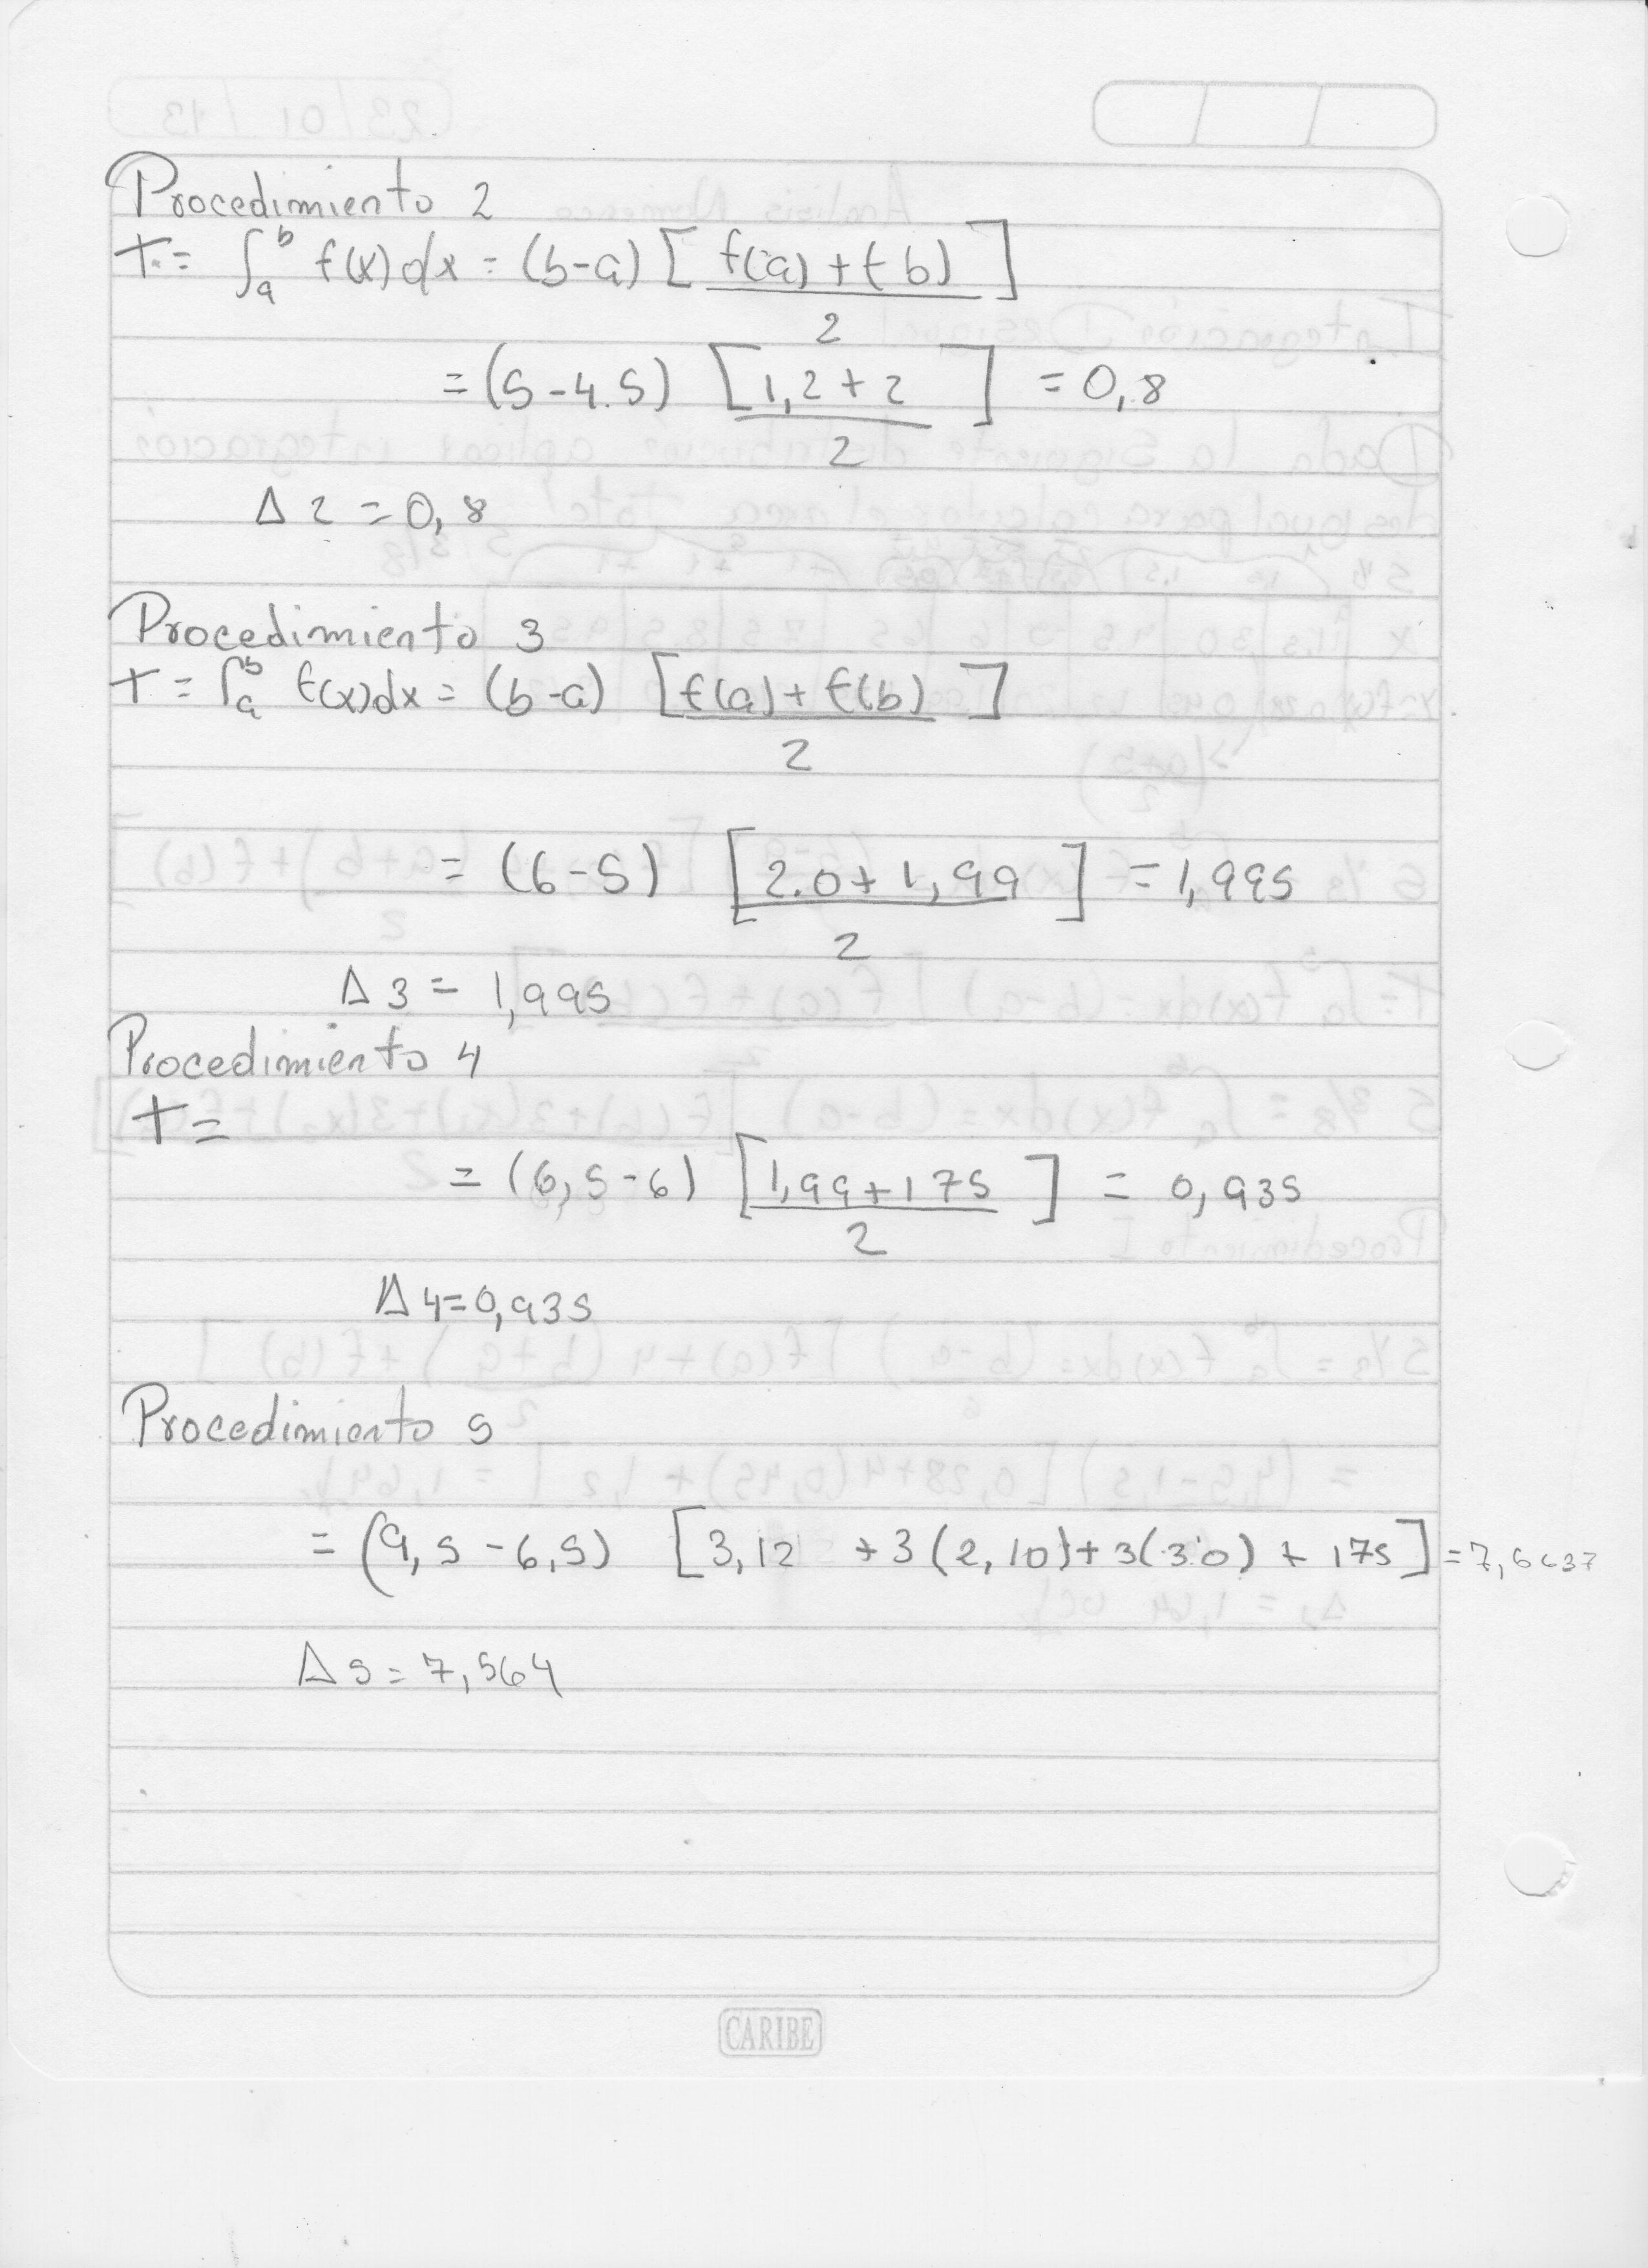 Procedimiento 2
T = ∫ₐᵇ f(x)dx = (b-a) [f(a) + f b) / 2]
= (5-4.5) [1,2+2 / 2] = 0,8
Δ2 = 0,8
Procedimiento 3
T = ∫ₐᵇ f(x)dx = (b-a) [f(a) + f(b) / 2]
= (6-5) [2.0+1,99 / 2] = 1,995
Δ3 = 1,995
Procedimiento 4
T =
= (6,5-6) [1,99+175 / 2] = 0,935
Δ4=0,935
Procedimiento 5
= (9,5-6,5) [3,12 +3(2,10)+3(3.0) + 175]
Δ5=7,564
CARIBE